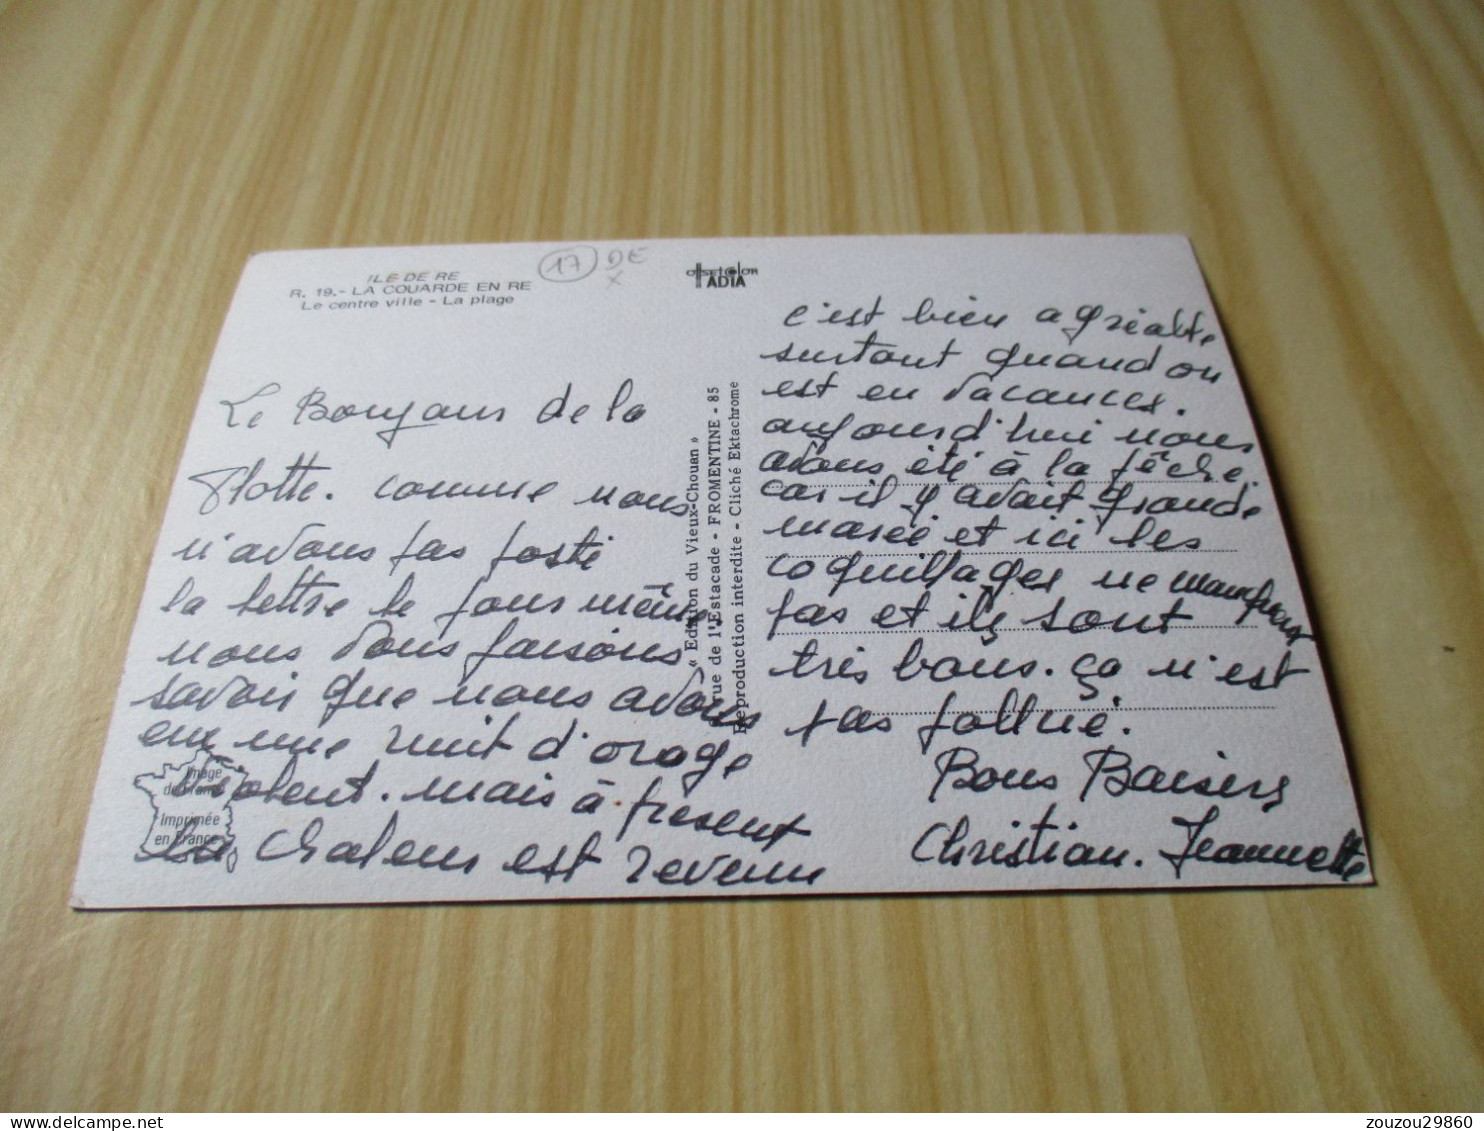 ILE DE RE
R. 19.- LA COUARDE EN RE
Le centre ville - La plage
17 DE
X
OFFSETCOLOR
ADIA
Le Bonjour de la
Flotte. comme nous
n'avons pas posté
la lettre le jour même
nous vous faisons
savoir que nous avons
eu une nuit d'orage
violent. mais à présent
La chaleur est revenu
« Edition du Vieux-Chouan »
rue de l'Estacade - FROMENTINE - 85
Reproduction interdite - Cliché Ektachrome
c'est bien agréable
surtout quand on
est en vacances.
aujourd'hui nous
avons été à la pêche
car il y avait grande
marée et ici les
coquillages ne manquent
pas et ils sont
très bons. ça n'est
pas pollué.
Bons Baisers
Christian. Jeannette
Image
de France
Imprimée
en France
zouzou29860